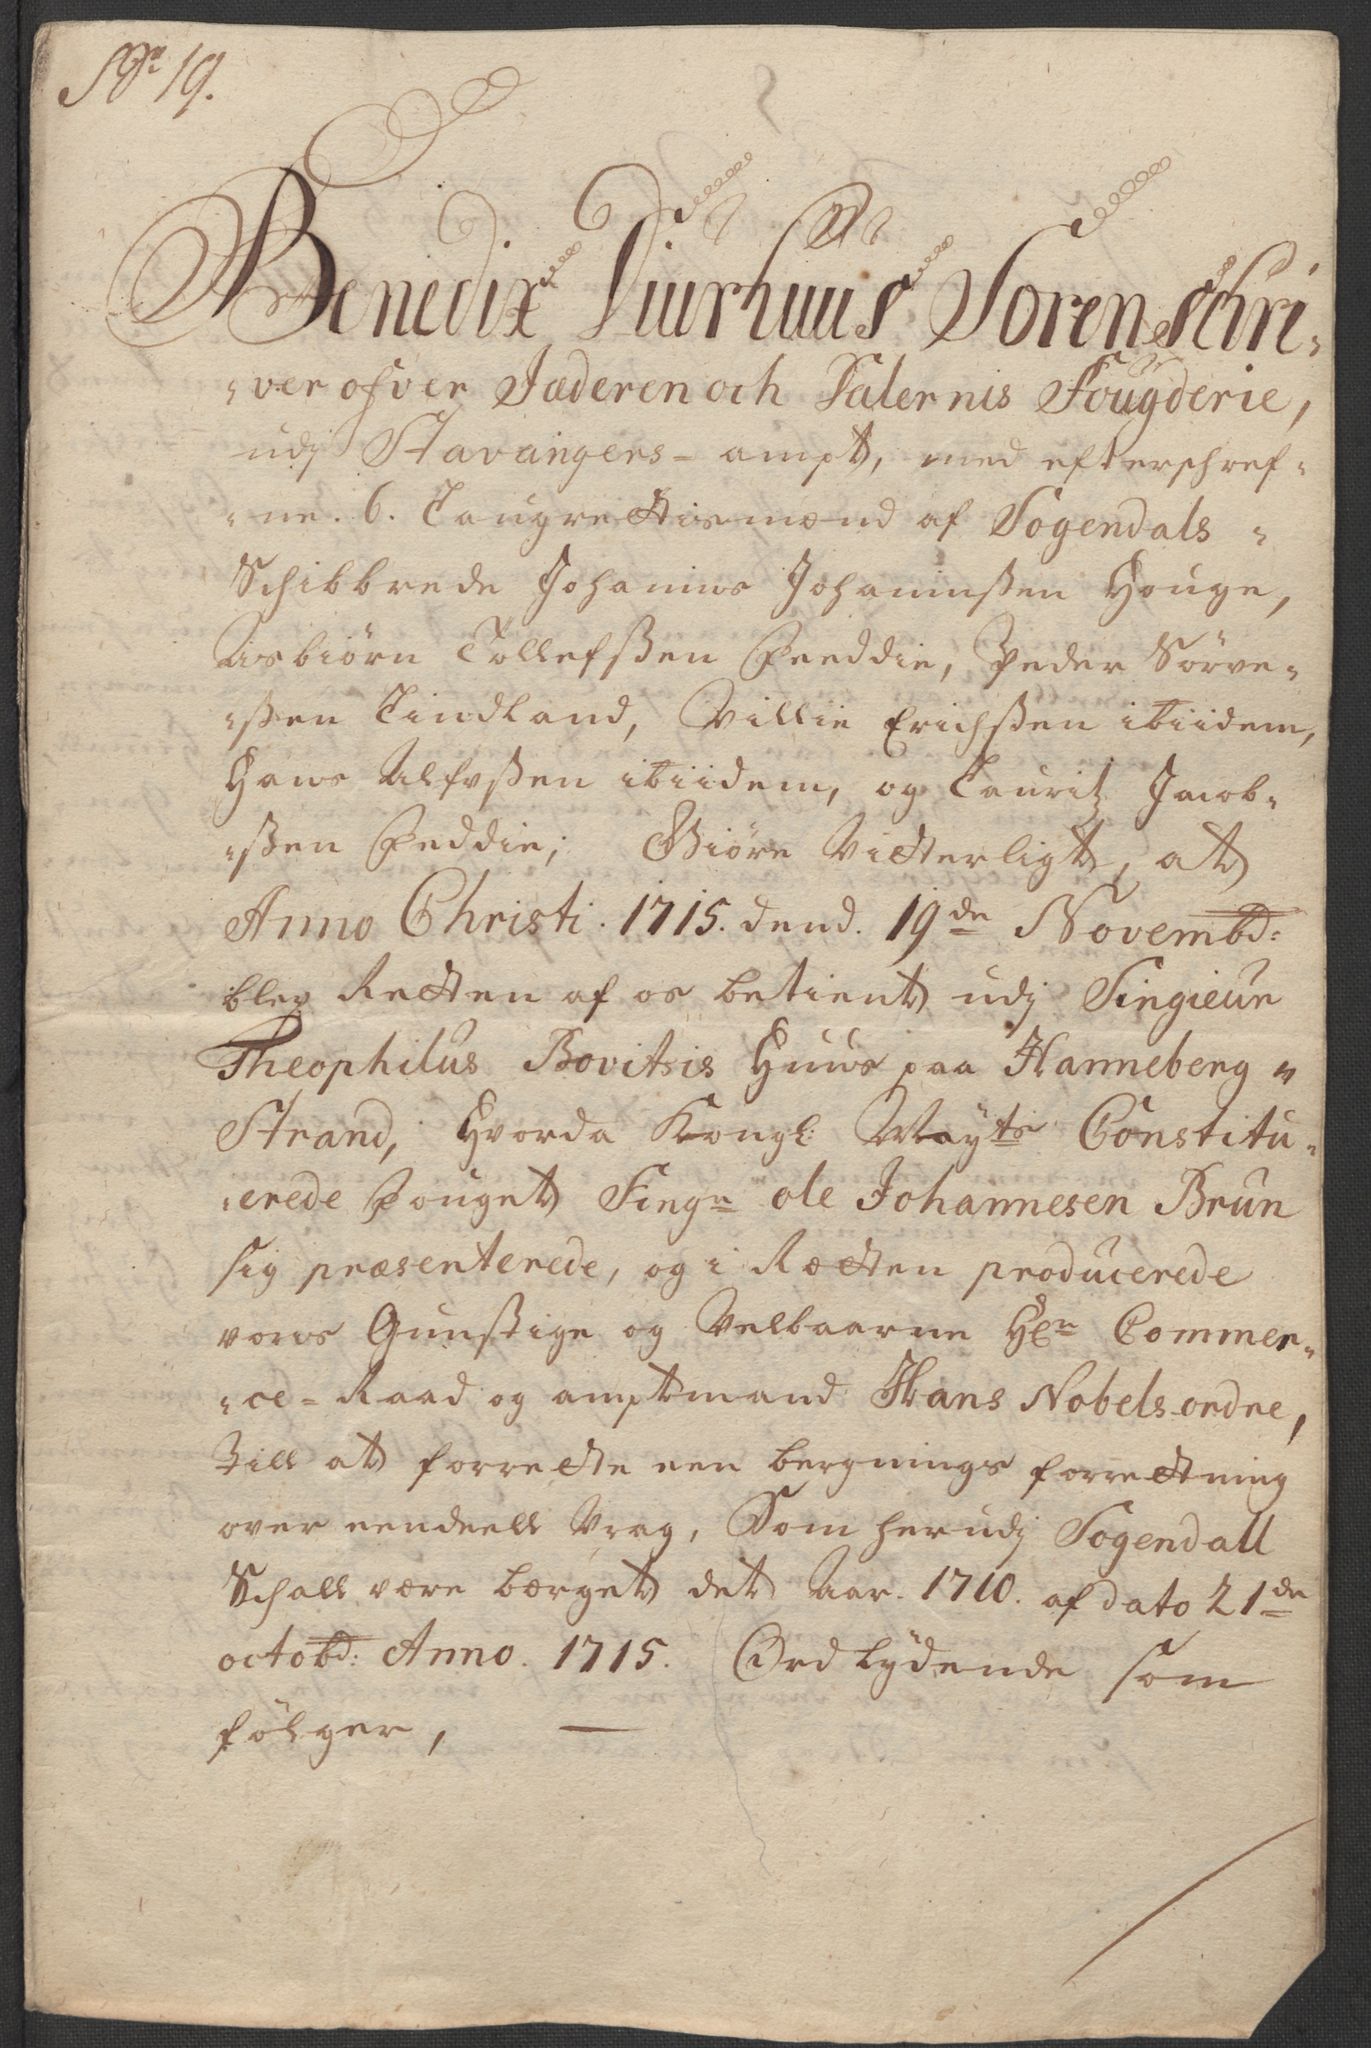 No 19.
Benedix Diurhuus Sorenschri-
-ver ofver Jæderen och Dalernis Fougderie,
udj Stavangers-ampt, med efterschref-
-ne. 6. Laugrettismænd af Sogendals -
Schibbrede Johannes Johannesßen Houge,
Asbiørn Tollefßen Feeddie, Peder Sørve-
-ßen Lindland, Villie Erichßen ibiidem,
Hans Alfvßen ibiidem, og Lauritz Jacob-
-ßen Feddie; Giøre Vitterligt, at
Anno Christi. 1715. dend. 19de Novembd:
blev Retten af os betient udj Singieur
Theophilus Bovitsis Huus paa Hanneberg
Strand, Hvorda Kongl: Mayts Constitu-
-erede Fouget Singr ole Johannesen Brun
sig præsenterede, og i Rætten producerede
vores Gunstige og Velbaarne Hr Commer-
-ce-Raad og amptmand Hans Nobels ordre,
Till at forrette een bergnings forretning
over eendeell Vrag, Som herudj Sogendall
Schall være berget det Aar. 1710. af dato 21de
octobd: Anno. 1715. Ord lydende som
følger,